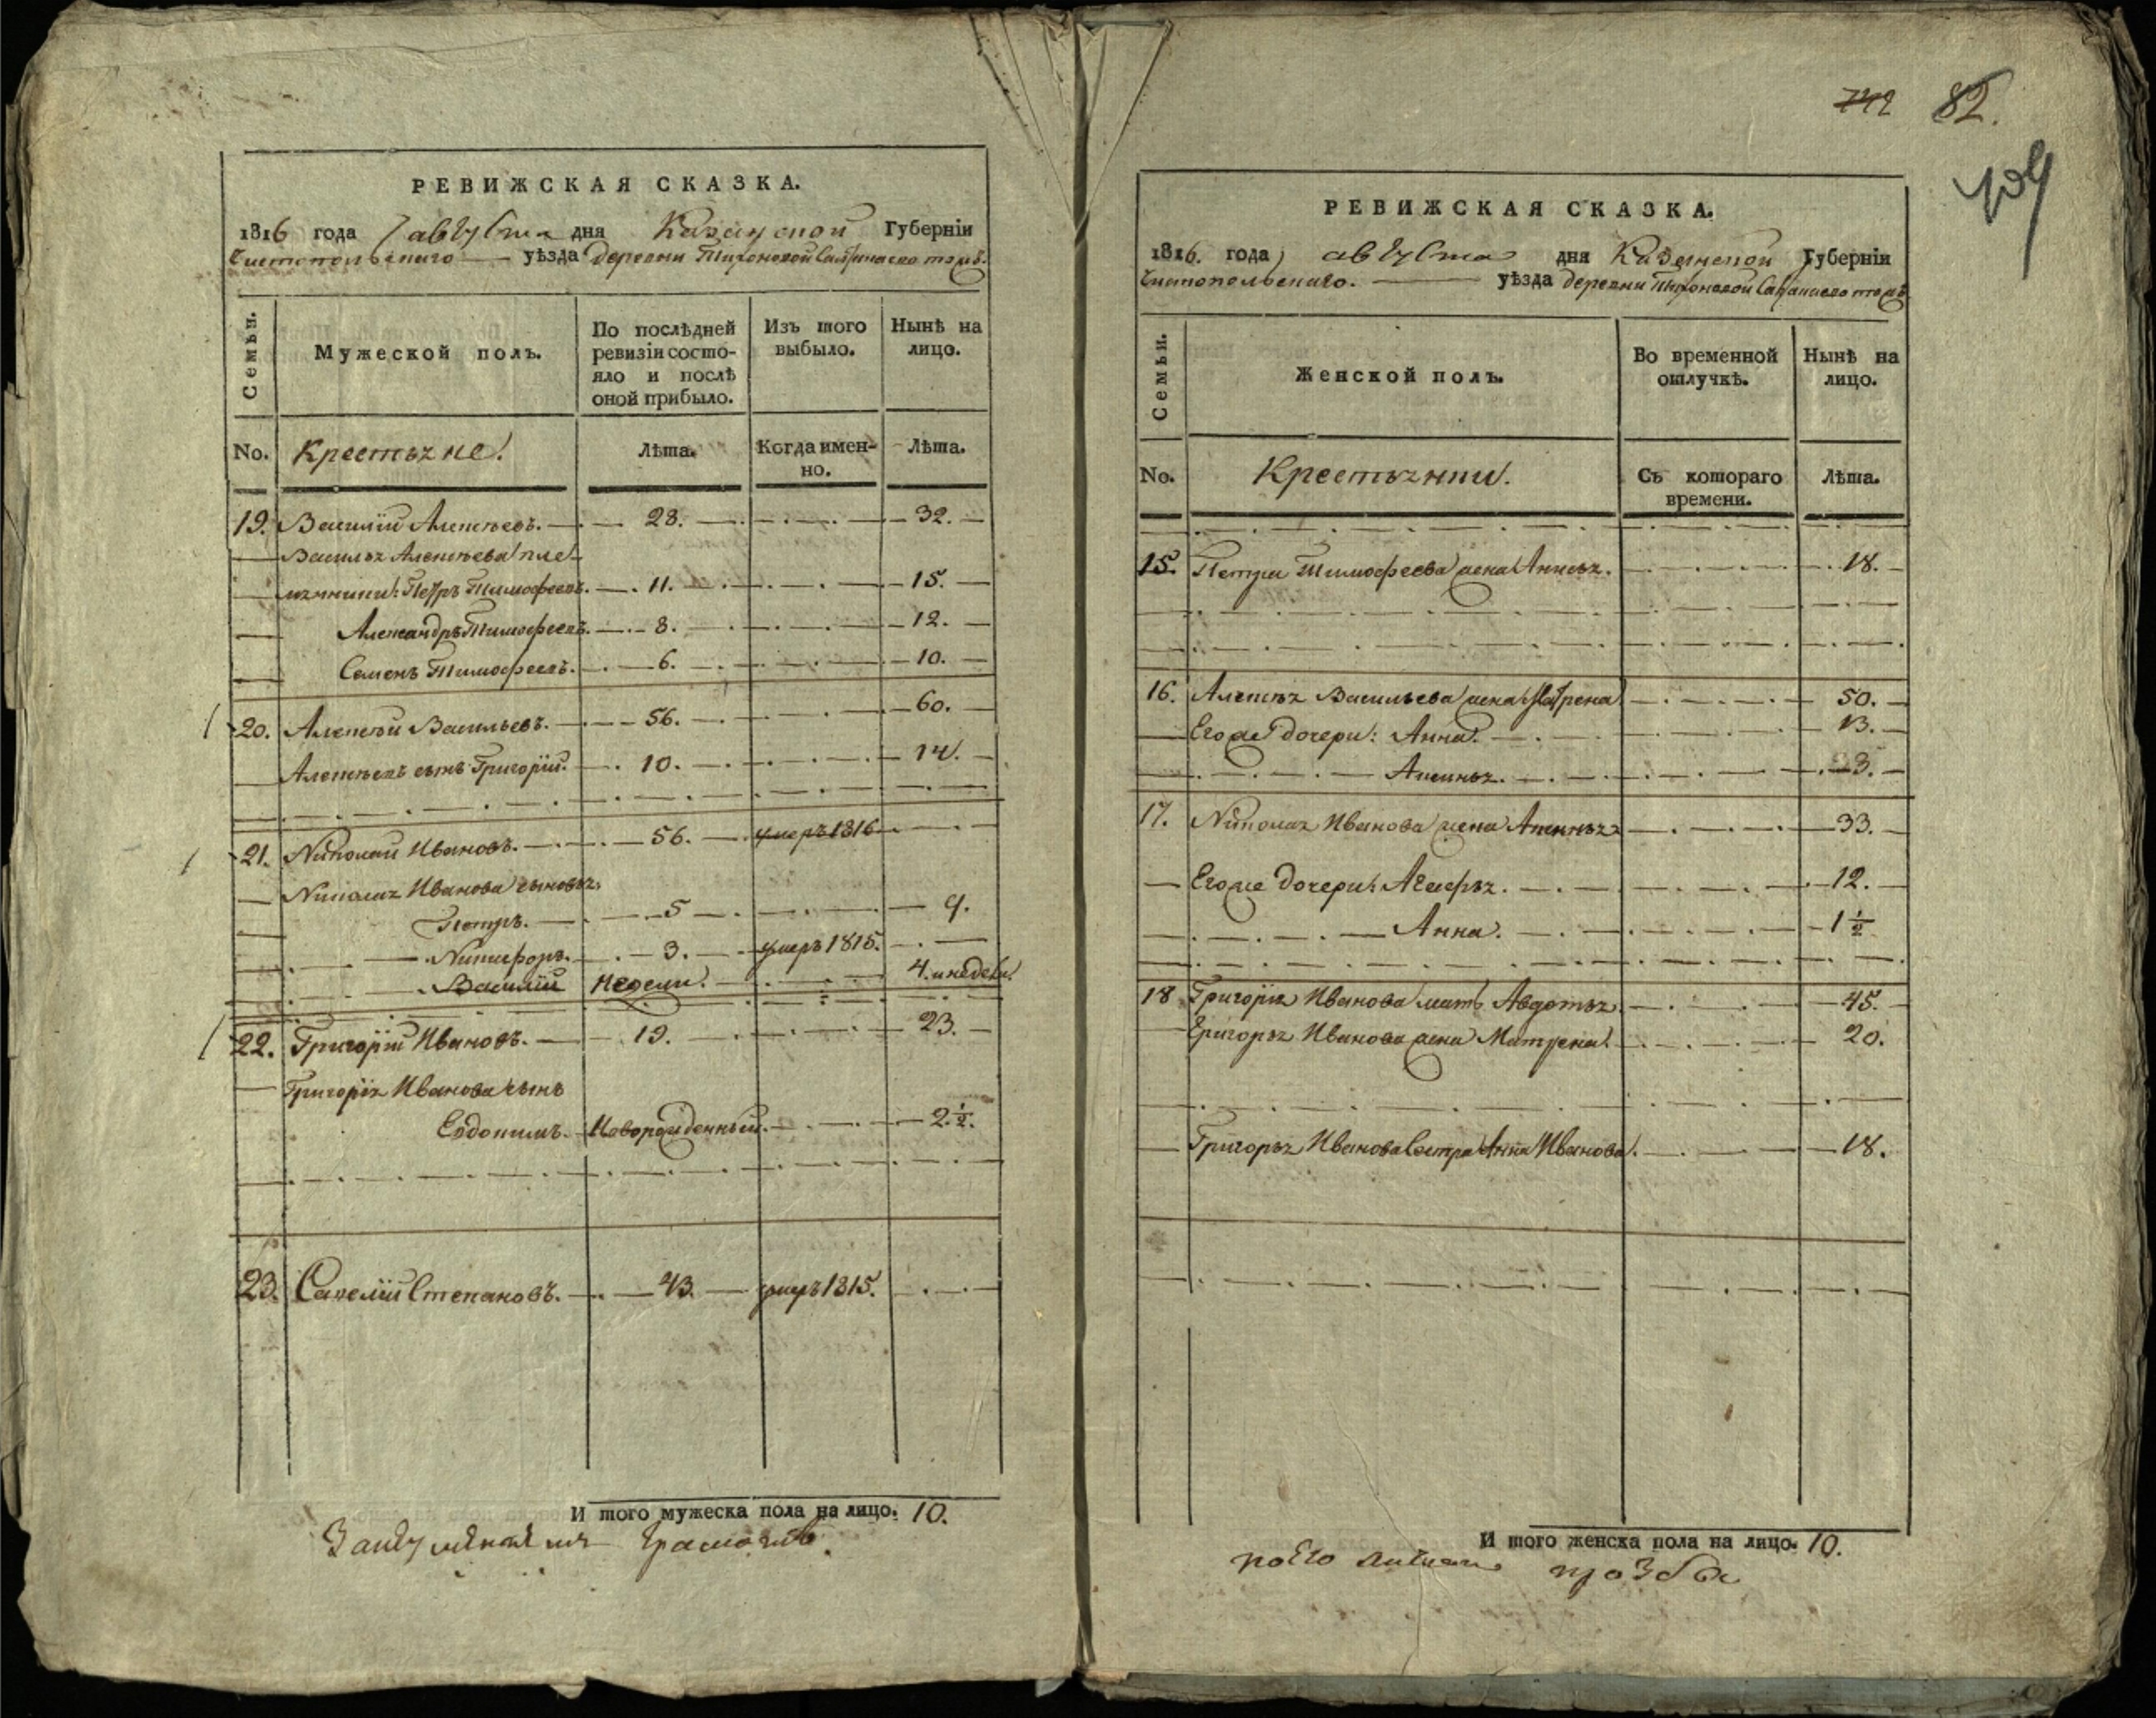 РЕВИЖСКАЯ СКАЗКА.
1816 года августа дня Казанской Губерніи
Чистопольскаго уѣзда деревни Тихоновой
Семьи.
Мужеской полъ.
По послѣдней ревизіи состо-
яло и послѣ
оной прибыло.
Изъ того
выбыло.
Нынѣ на
лицо.
No.
Крестьяне.
Лѣта.
Когда имен-
но.
Лѣта.
19. Василій Алексѣевъ. 28. 32.
Василья Алексѣева пле-
мянники: Петръ Тимофеевъ. 11. 15.
Александръ Тимофеевъ. 8. 12.
Семенъ Тимофеевъ. 6. 10.
20. Алексѣй Васильевъ. 56. 60.
Алексѣевъ сынъ Григорій. 10. 14.
21. Николай Ивановъ. 56. умеръ 1816
Николая Иванова сыновья:
Петръ. 5 9.
Никифоръ. 3. умеръ 1815.
Василій недели. 4. и недели.
22. Григорій Ивановъ. 19. 23.
Григорія Иванова сынъ
Евдокимъ. Новорожденный. 2 1/2.
23. Савелій Степановъ. 43. умеръ 1815.
И того мужеска пола на лицо. 10.
742 82.
РЕВИЖСКАЯ СКАЗКА.
1816. года августа дня Казанской Губерніи
Чистопольскаго. уѣзда деревни Тихоновой
Семьи.
Женской полъ.
Во временной
отлучкѣ.
Нынѣ на
лицо.
No.
Крестьянки.
Съ котораго
времени.
Лѣта.
15. Петра Тимофеева жена Анисья. 18.
16. Алексѣя Васильева жена Матрена 50.
Его же дочери: Анна. 13.
Аксинья. 3.
17. Николая Иванова жена Аксинья 33.
Его же дочери: Агафья. 12.
Анна. 1 1/2
18 Григорія Иванова мать Авдотья 45.
Григорья Иванова жена Матрена. 20.
Григорья Иванова сестра Анна Иванова. 18.
И того женска пола на лицо. 10.
по его прозбе